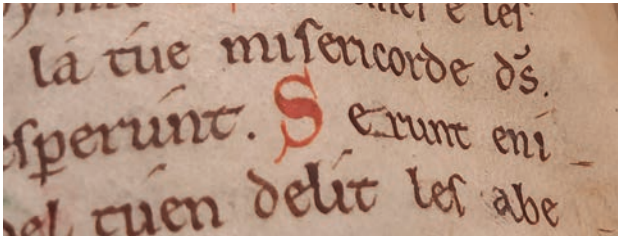 la tue misericorde ds.
esperunt. S erunt eni
el tuen delit les abe